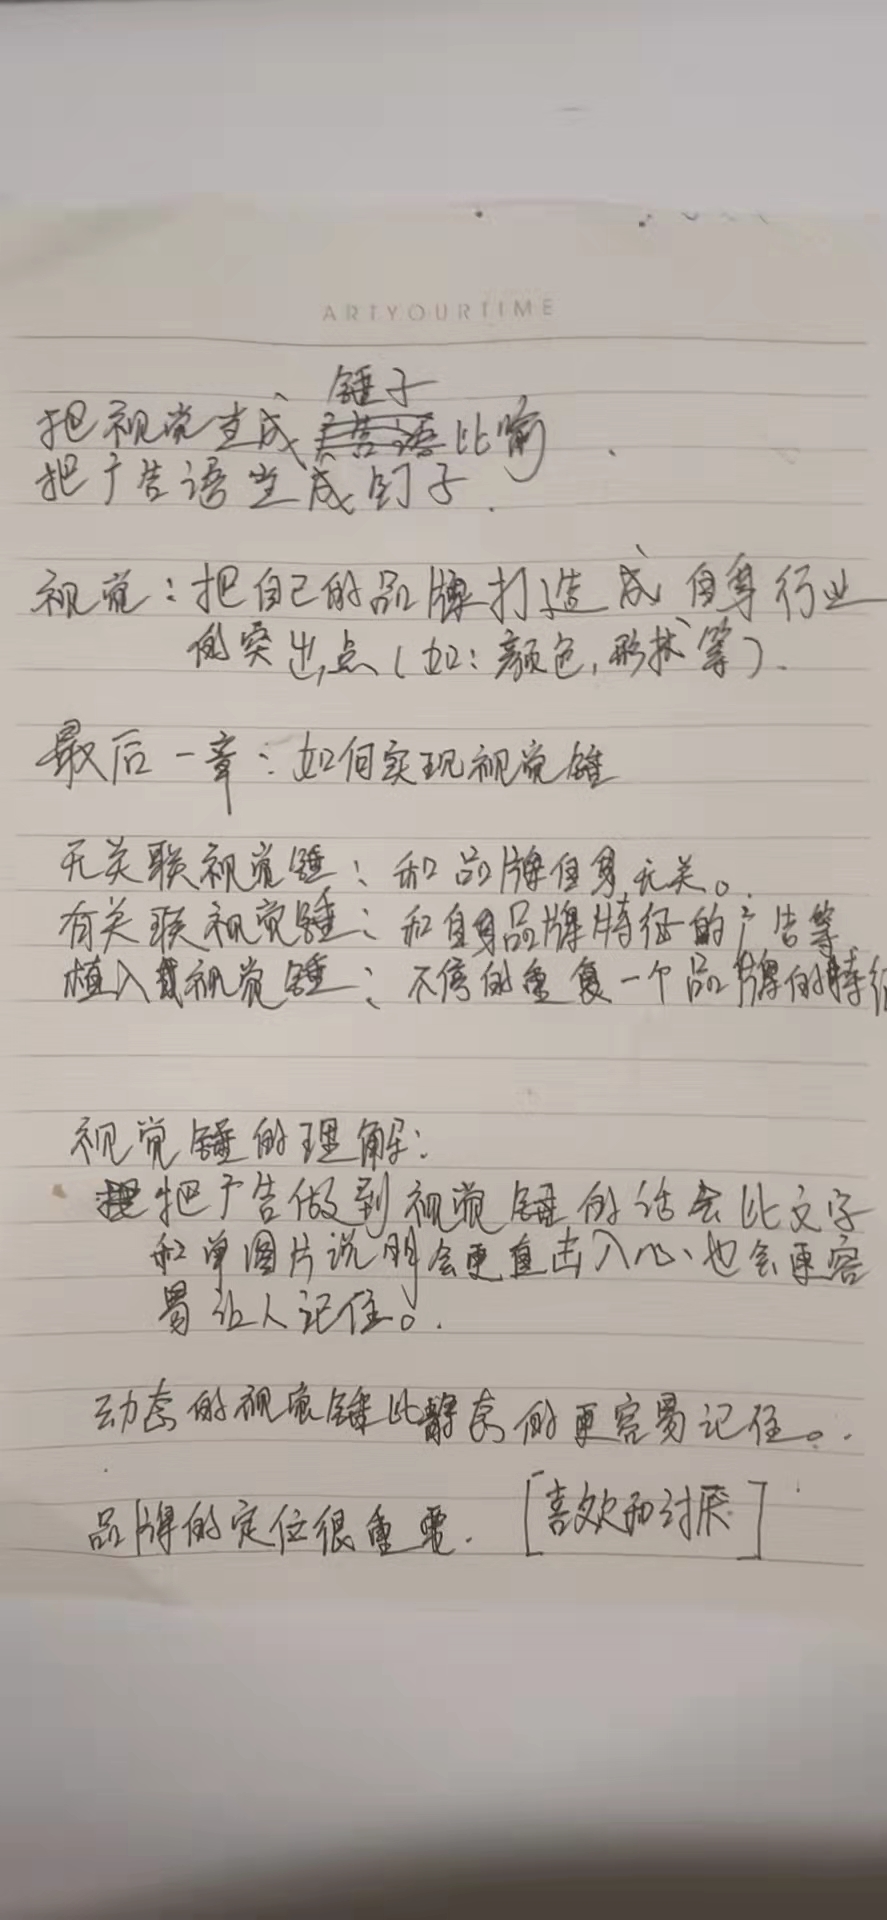 ARTYOURTIME
锤子
把视觉当成比喻.
把广告语当成钉子.
视觉:把自己的品牌打造成自身行业
的突出点(如:颜色,形状等).
最后一章:如何实现视觉锤
无关联视觉锤:和品牌自身无关。
有关联视觉锤:和自身品牌特征的广告等
植入式视觉锤:不停的重复一个品牌的特征
视觉锤的理解:
把广告做到视觉锤的话会比文字
和单图片说明会更直击人心、也会更容
易让人记住。.
动态的视觉锤比静态的更容易记住。.
品牌的定位很重要. [喜欢和讨厌]